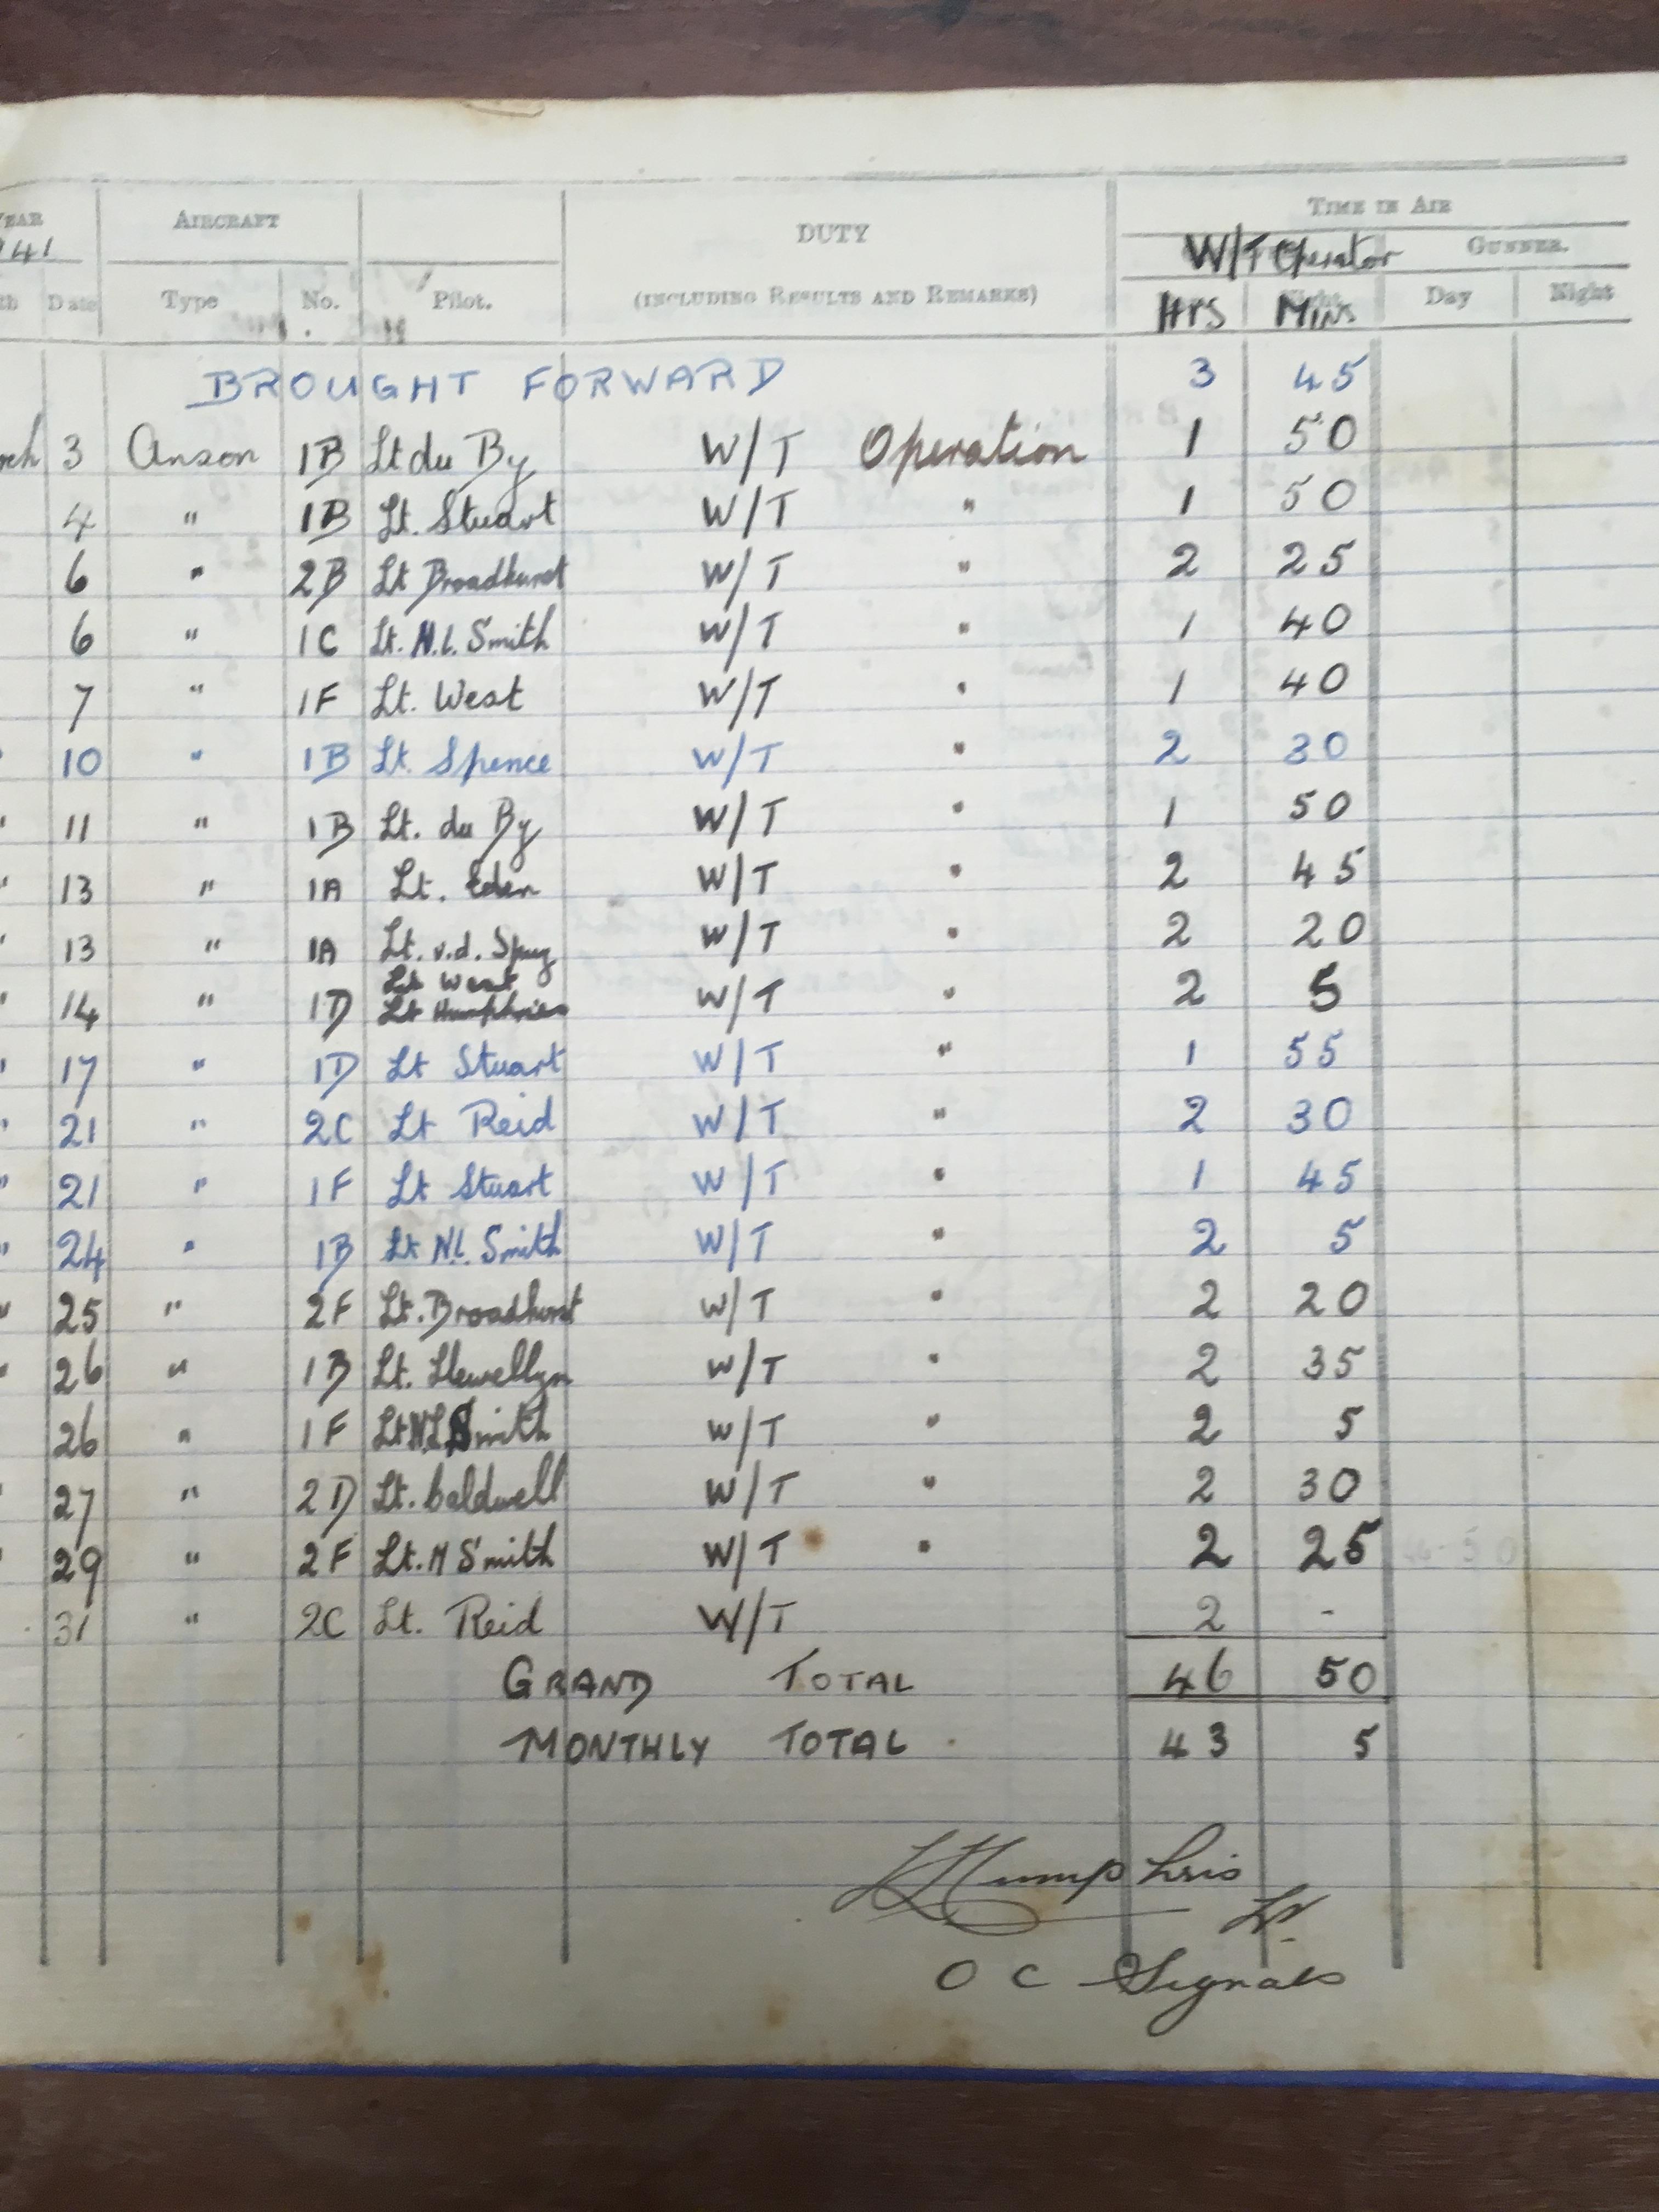 YEAR AIRCRAFT DUTY TIME IN AIR
41 W/T Operator GUNNER.
th Date Type No. Pilot. (INCLUDING RESULTS AND REMARKS) HRS MINS Day Night
BROUGHT FORWARD 3 45
rch 3 Anson 1B Lt du By W/T Operation 1 50
4 " 1B Lt. Stuart W/T " 1 50
6 " 2B Lt Broadhurst W/T " 2 25
6 " 1C Lt. N.L. Smith W/T " 1 40
7 " 1F Lt. West W/T " 1 40
" 10 " 1B Lt. Spence W/T " 2 30
" 11 " 1B Lt. du By W/T " 1 50
" 13 " 1A Lt. Eden W/T " 2 45
" 13 " 1A Lt. v.d. Spuy W/T " 2 20
Lt West
" 14 " 1D Lt Humphries W/T " 2 5
" 17 " 1D Lt Stuart W/T " 1 55
" 21 " 2C Lt Reid W/T " 2 30
" 21 " 1F Lt Stuart W/T " 1 45
" 24 " 1B Lt N.L. Smith W/T " 2 5
" 25 " 2F Lt. Broadhurst W/T " 2 20
" 26 " 1B Lt. Llewellyn W/T " 2 35
26 " 1F Lt N L Smith W/T " 2 5
" 27 " 2D Lt. Caldwell W/T " 2 30
" 29 " 2F Lt. N Smith W/T " 2 25
31 " 2C Lt. Reid W/T 2 -
GRAND TOTAL 46 50
MONTHLY TOTAL 43 5
Humphris
Lt.
O C Signals